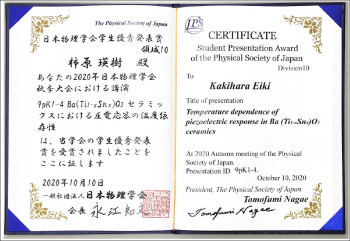 The Physical Society of Japan
日本物理学会学生優秀発表賞
領域10
柿原 瑛樹 殿
あなたの2020年日本物理学会
秋季大会における講演
9pK1-4 Ba(Ti1-xSnx)O3 セラミッ
クスにおける圧電応答の温度依
存性
は、当学会の学生優秀発表
賞を受賞されましたことを
ここに証します
2020年10月10日
一般社団法人日本物理学会
会長 永江知文
JPS
CERTIFICATE
Student Presentation Award
of the Physical Society of Japan
Division10
To
Kakihara Eiki
Title of presentation
Temperature dependence of
piezoelectric response in Ba (Ti1-xSnx)O3
ceramics
At 2020 Autumn meeting of the Physical
Society of Japan.
Presentation ID 9pK1-4.
October 10, 2020
President, The Physical Society of Japan
Tomofumi Nagae
Tomofumi Nagae